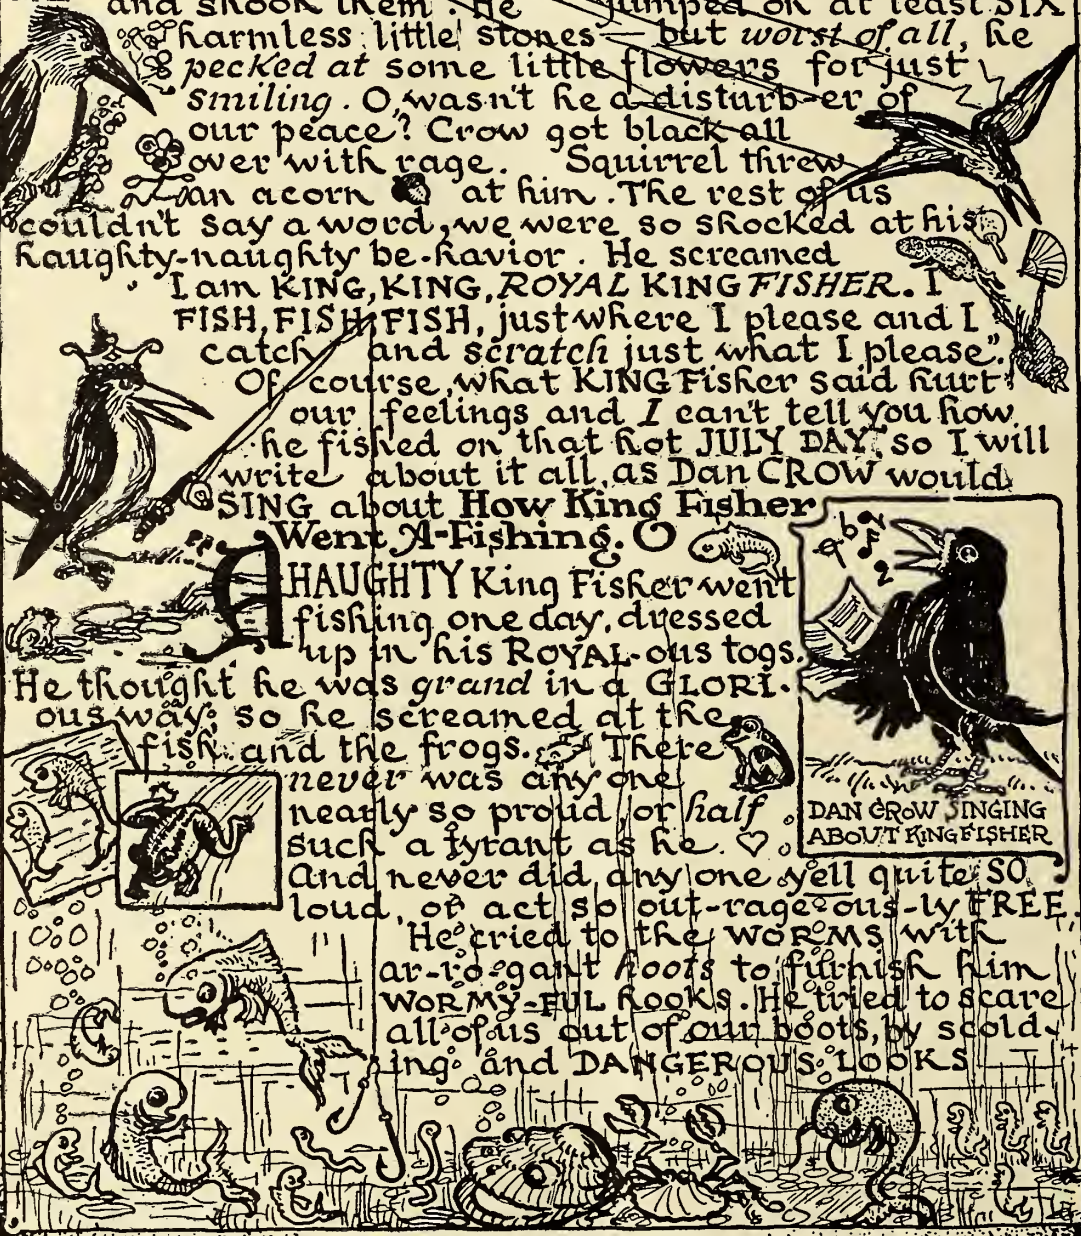 and shook them. He jumped on at least SIX
harmless little stones — but worst of all, he
pecked at some little flowers for just
smiling. O, wasn't he a disturb-er of
our peace? Crow got black all
over with rage. Squirrel threw
an acorn at him. The rest of us
couldn't say a word, we were so shocked at his
haughty-naughty be-havior. He screamed
I am KING, KING, ROYAL KING FISHER. I
FISH, FISH, FISH, just where I please and I
catch and scratch just what I please".
Of course, what KING Fisher said hurt
our feelings and I can't tell you how
he fished on that hot JULY DAY, so I will
write about it all, as Dan CROW would
SING about How King Fisher
Went A-Fishing. O
A HAUGHTY King Fisher went
fishing one day, dressed
up in his ROYAL-ous togs.
He thought he was grand in a GLORI-
ous way; so he screamed at the
fish and the frogs. There
never was any one
nearly so proud, or half
such a tyrant as he.
And never did any one yell quite SO
loud, or act so out-rage-ous-ly FREE.
He cried to the WORMS with
ar-ro-gant hoots to furnish him
WORMY-FUL hooks. He tried to scare
all of us out of our boots, by scold-
ing and DANGEROUS LOOKS
DAN CROW SINGING
ABOUT KINGFISHER